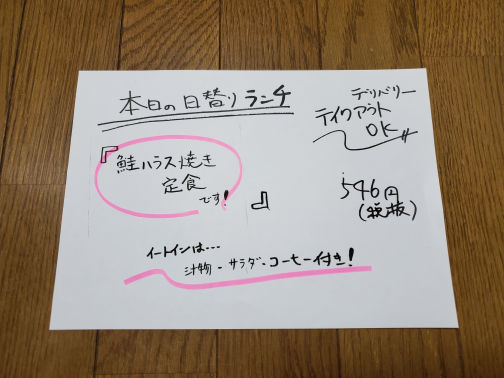 本日の日替りランチ
デリバリー
テイクアウト
OK
『鮭ハラス焼き
定食
です!』
546円
(税抜)
イートインは...
汁物・サラダ・コーヒー付き!